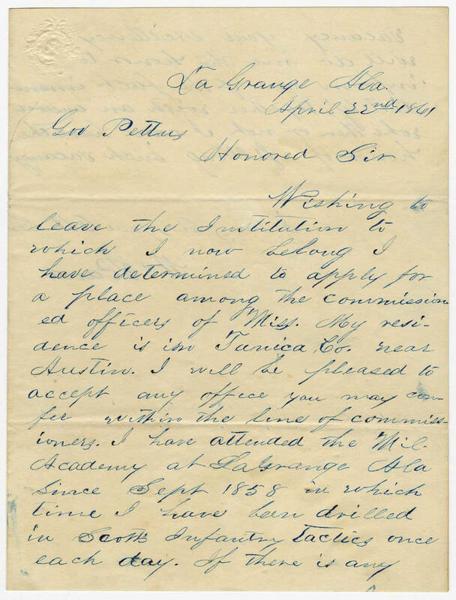 La Grange Ala.
April 22nd 1861
Gov Pettus
Honored Sir
Wishing to
leave the Institution to
which I now belong I
have determined to apply for
a place among the commission
ed officers of Miss. My resi-
dence is in Tunica Co. near
Austin. I will be pleased to
accept any office you may con-
fer within the line of commiss-
ioners. I have attended the Mil.
Academy at LaGrange Ala
since Sept 1858 in which
time I have been drilled
in Scotts Infantry Tactics once
each day. If there is any